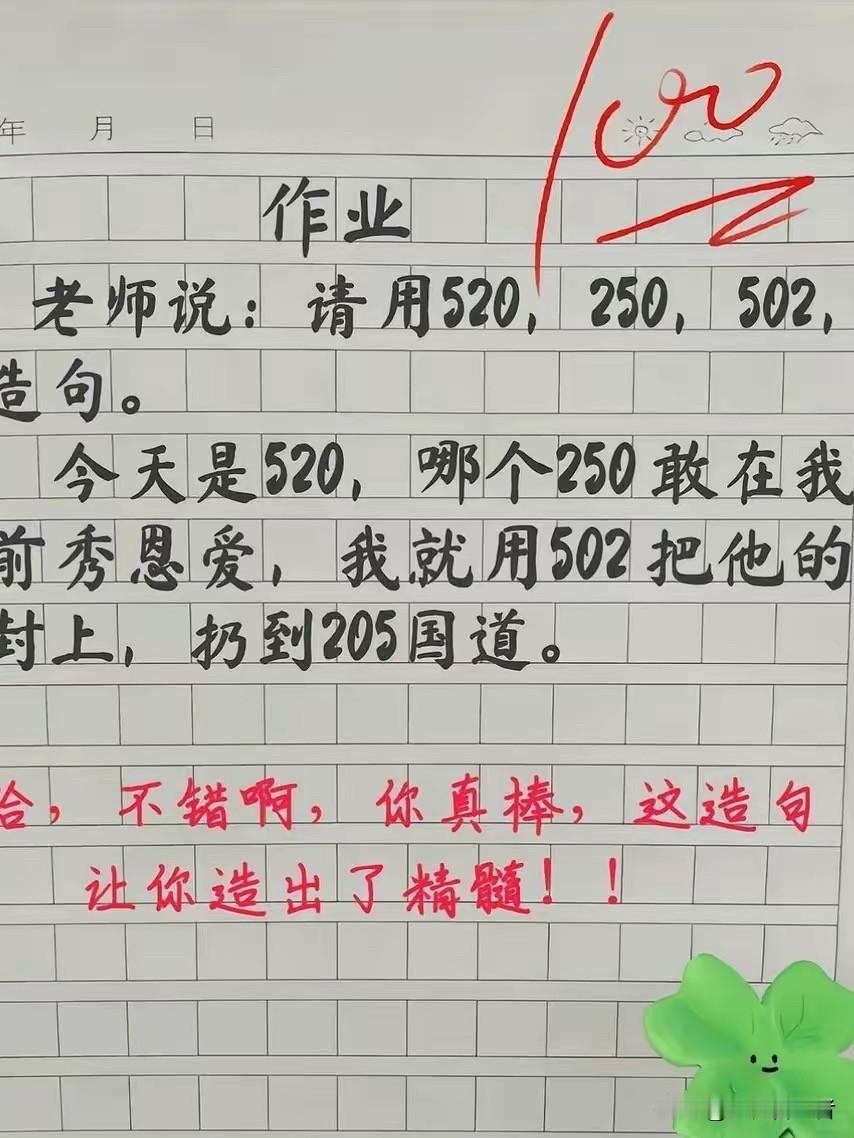 年 月 日
100
作业
老师说：请用520，250，502，
造句。
今天是520，哪个250敢在我
前秀恩爱，我就用502把他的
封上，扔到205国道。
哈，不错啊，你真棒，这造句
让你造出了精髓！！